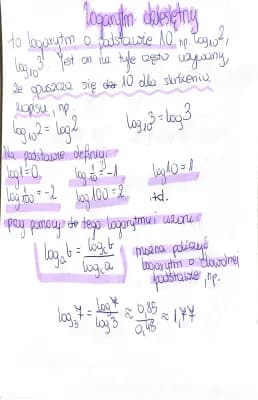 Logarytm dziesiętny
to logarytm o podstawie 10, np. log₁₀2,
log₁₀3. Jest on na tyle często używany,
że opuszcza się 10 dla skrócenia
zapisu, np.
log₁₀2 = log2 log₁₀3 = log3
Na podstawie definicji
log1=0, log 1/10 = -1 log10 = 1
log 1/100 = -2 log100 = 2. itd.
przy pomocy tego logarytmu i wzoru
logₐb = log_c b / log_c a można policzyć
logarytm o dowolnej
podstawie, np.
log₃7 = log7 / log3 ≈ 0,85 / 0,48 ≈ 1,77